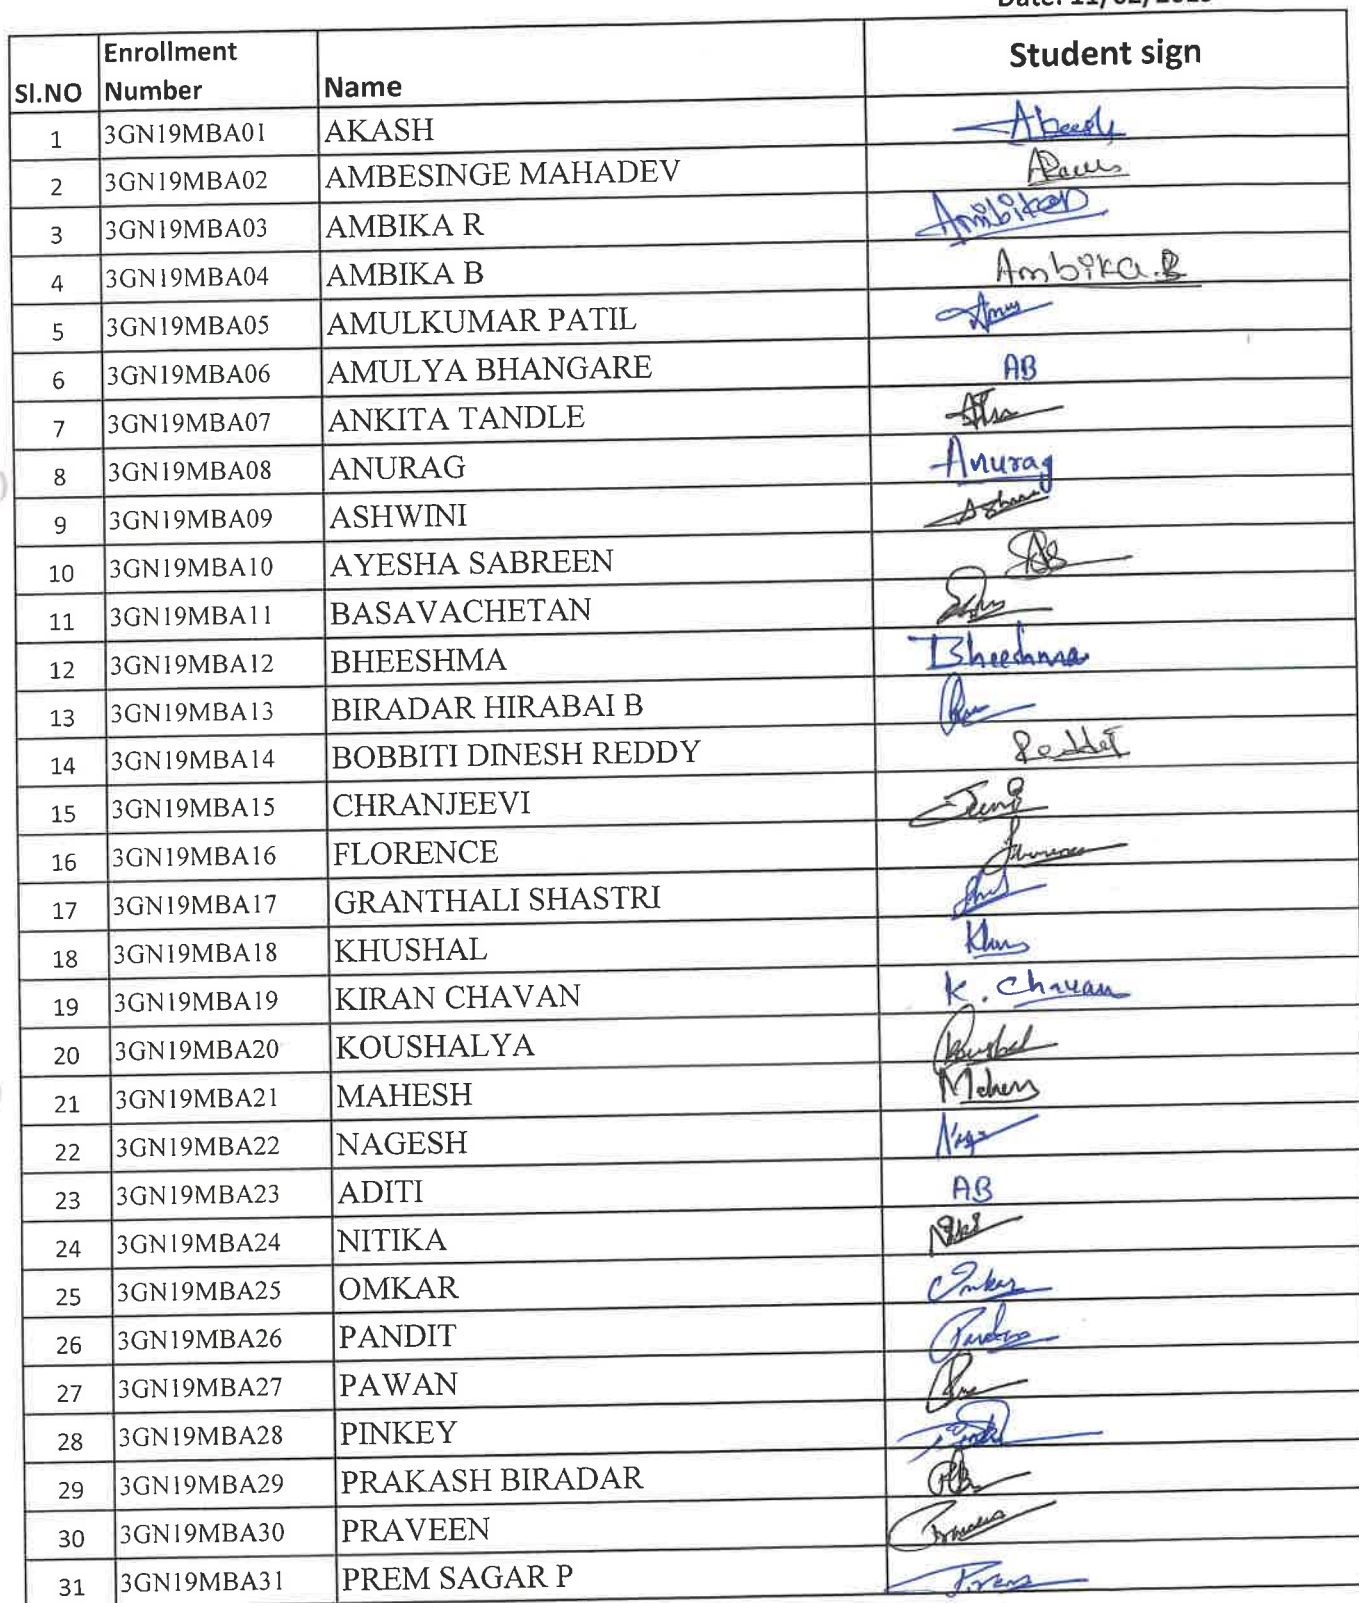 Sl.NO Enrollment Number Name Student sign
1 3GN19MBA01 AKASH
2 3GN19MBA02 AMBESINGE MAHADEV
3 3GN19MBA03 AMBIKA R
4 3GN19MBA04 AMBIKA B Ambika.B
5 3GN19MBA05 AMULKUMAR PATIL
6 3GN19MBA06 AMULYA BHANGARE AB
7 3GN19MBA07 ANKITA TANDLE
8 3GN19MBA08 ANURAG Anurag
9 3GN19MBA09 ASHWINI
10 3GN19MBA10 AYESHA SABREEN
11 3GN19MBA11 BASAVACHETAN
12 3GN19MBA12 BHEESHMA Bheeshma
13 3GN19MBA13 BIRADAR HIRABAI B
14 3GN19MBA14 BOBBITI DINESH REDDY
15 3GN19MBA15 CHRANJEEVI
16 3GN19MBA16 FLORENCE
17 3GN19MBA17 GRANTHALI SHASTRI
18 3GN19MBA18 KHUSHAL
19 3GN19MBA19 KIRAN CHAVAN K. Chavan
20 3GN19MBA20 KOUSHALYA
21 3GN19MBA21 MAHESH
22 3GN19MBA22 NAGESH
23 3GN19MBA23 ADITI AB
24 3GN19MBA24 NITIKA
25 3GN19MBA25 OMKAR Omkar
26 3GN19MBA26 PANDIT
27 3GN19MBA27 PAWAN
28 3GN19MBA28 PINKEY
29 3GN19MBA29 PRAKASH BIRADAR
30 3GN19MBA30 PRAVEEN
31 3GN19MBA31 PREM SAGAR P